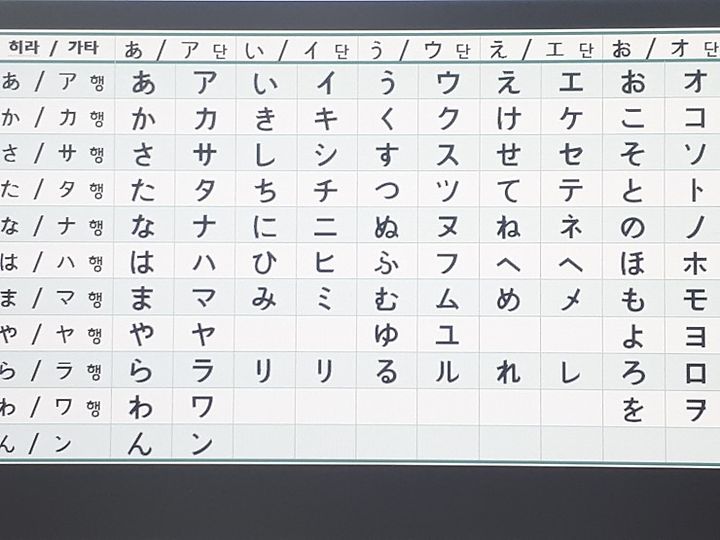 히라 / 가타 あ / ア 단 い / イ 단 う / ウ 단 え / エ 단 お / オ 단
あ / ア 행 あ ア い イ う ウ え エ お オ
か / カ 행 か カ き キ く ク け ケ こ コ
さ / サ 행 さ サ し シ す ス せ セ そ ソ
た / タ 행 た タ ち チ つ ツ て テ と ト
な / ナ 행 な ナ に ニ ぬ ヌ ね ネ の ノ
は / ハ 행 は ハ ひ ヒ ふ フ へ ヘ ほ ホ
ま / マ 행 ま マ み ミ む ム め メ も モ
や / ヤ 행 や ヤ ゆ ユ よ ヨ
ら / ラ 행 ら ラ リ リ る ル れ レ ろ ロ
わ / ワ 행 わ ワ を ヲ
ん / ン ん ン